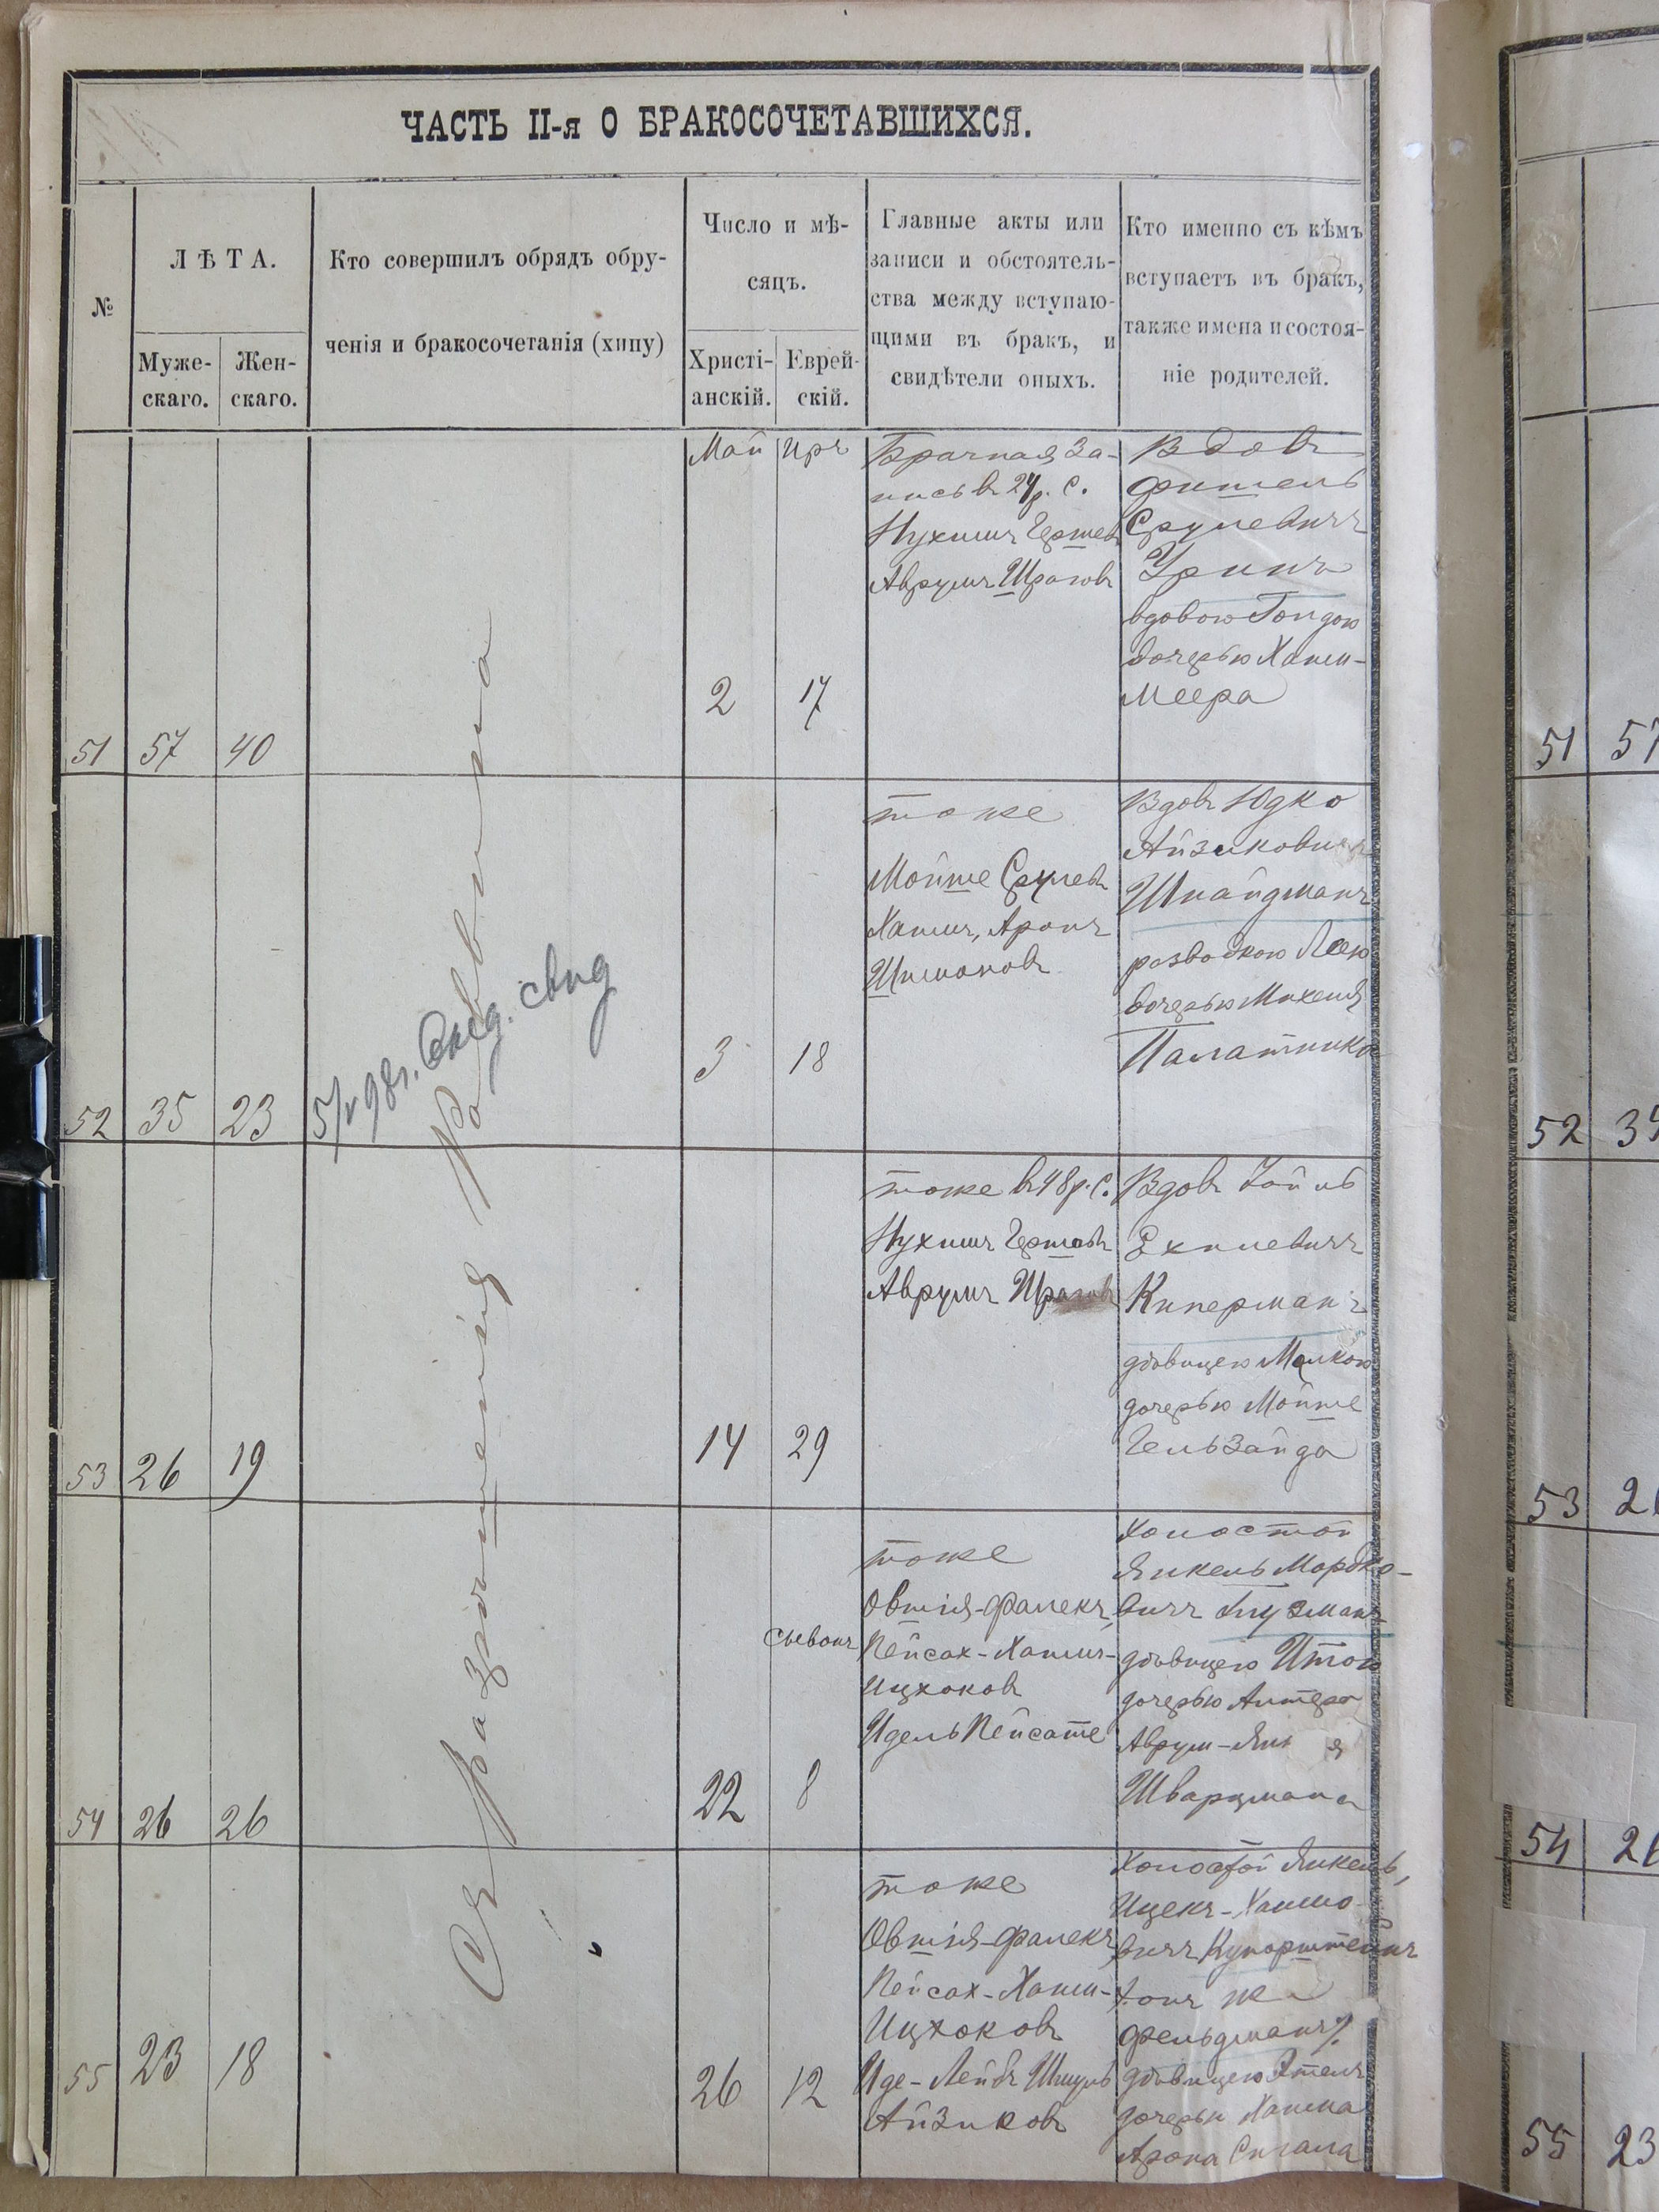 ЧАСТЬ II-я О БРАКОСОЧЕТАВШИХСЯ.
№
ЛѢТА.
Муже-
скаго.
Жен-
скаго.
Кто совершилъ обрядъ обру-
ченія и бракосочетанія (хипу)
Число и мѣ-
сяцъ.
Христі-
анскій.
Еврей-
скій.
Главные акты или
записи и обстоятель-
ства между вступаю-
щими въ бракъ, и
свидѣтели оныхъ.
Кто именно съ кѣмъ
вступаетъ въ бракъ,
также имена и состоя-
ніе родителей.
Съ разрѣшенія раввина
51
57
40
Май
2
Иръ
17
Брачная за-
пись въ 24 р. с.
Нухимъ Гершевъ
Аврумъ Шраговъ
Вдовъ
Фишель
Срулевичъ
Уринъ
вдовою Голдою
дочерью Хаим-
Меера
52
35
23
5/v 98 г. свид
3
18
тоже
Мойше Срулевъ
Хаимъ, Аронъ
Шимоновъ
Вдовъ Юдко
Айзиковичъ
Шнайдманъ
разводкою Леею
дочерью Михеля
Палатника
53
26
19
14
29
тоже в 48 р. с.
Нухимъ Гершевъ
Аврумъ Шраговъ
Вдовъ Хойль
Ехилевичъ
Киперманъ
дѣвицею Малкою
дочерью Мойше
Гельзайда
54
26
26
22
Сыванъ
8
тоже
Овшія-Фалекъ,
Пейсах-Хаимъ-
Ицхоковъ
Идель Пейсате
Холостой
Янкель Мордко-
вичъ Глузманъ
дѣвицею Итою
дочерью Алтера
Аврум-
Шварцмана
55
23
18
26
12
тоже
Овшія-Фалекъ,
Пейсах-Хаим-
Ицхоковъ
Иде-Лейбъ Шмуль
Айзиковъ
Холостой Янкель,
Ицекъ-Хаимо-
вичъ Купорштейнъ
онъ же
Фельдманъ
дѣвицею Этель
дочерью Хаима
Арона Сигала
51
57
52
35
53
26
54
26
55
23